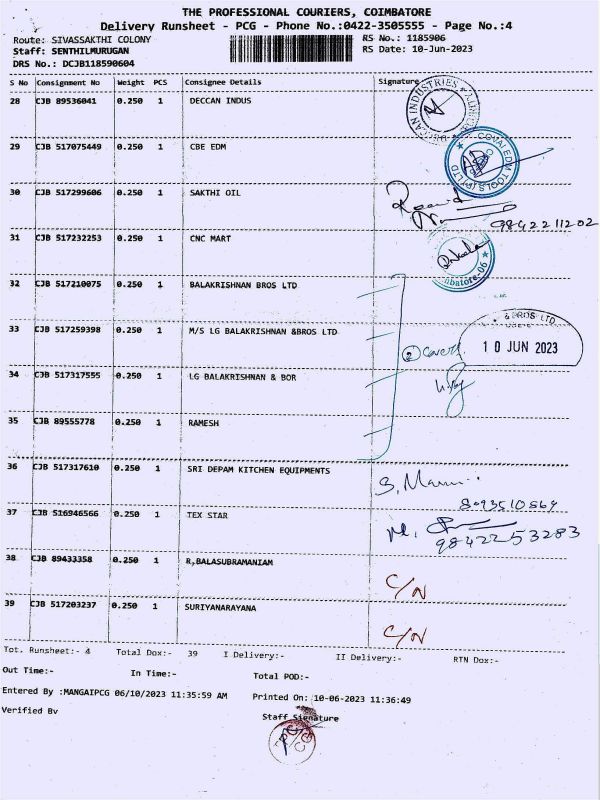 THE PROFESSIONAL COURIERS, COIMBATORE
Delivery Runsheet - PCG - Phone No.:0422-3505555 - Page No.:4
Route: SIVASSAKTHI COLONY RS No.: 1185906
Staff: SENTHILMURUGAN RS Date: 10-Jun-2023
DRS No.: DCJB118590604
S No Consignment No Weight PCS Consignee Details Signature
28 CJB 89536041 0.250 1 DECCAN INDUS
DECCAN INDUSTRIES
29 CJB 517075449 0.250 1 CBE EDM
COVAI EDM TOOLS (P) LTD
30 CJB 517299606 0.250 1 SAKTHI OIL
9842211202
31 CJB 517232253 0.250 1 CNC MART
32 CJB 517210075 0.250 1 BALAKRISHNAN BROS LTD
& BROS LTD
33 CJB 517259398 0.250 1 M/S LG BALAKRISHNAN &BROS LTD
10 JUN 2023
34 CJB 517317555 0.250 1 LG BALAKRISHNAN & BOR
35 CJB 89555778 0.250 1 RAMESH
36 CJB 517317610 0.250 1 SRI DEPAM KITCHEN EQUIPMENTS
37 CJB 516946566 0.250 1 TEX STAR
9842253283
38 CJB 89433358 0.250 1 R,BALASUBRAMANIAM
C/N
39 CJB 517203237 0.250 1 SURIYANARAYANA
C/N
Tot. Runsheet:- 4 Total Dox:- 39 I Delivery:- II Delivery:- RTN Dox:-
Out Time:- In Time:- Total POD:-
Entered By :MANGAIPCG 06/10/2023 11:35:59 AM Printed On: 10-06-2023 11:36:49
Verified By
Staff Signature